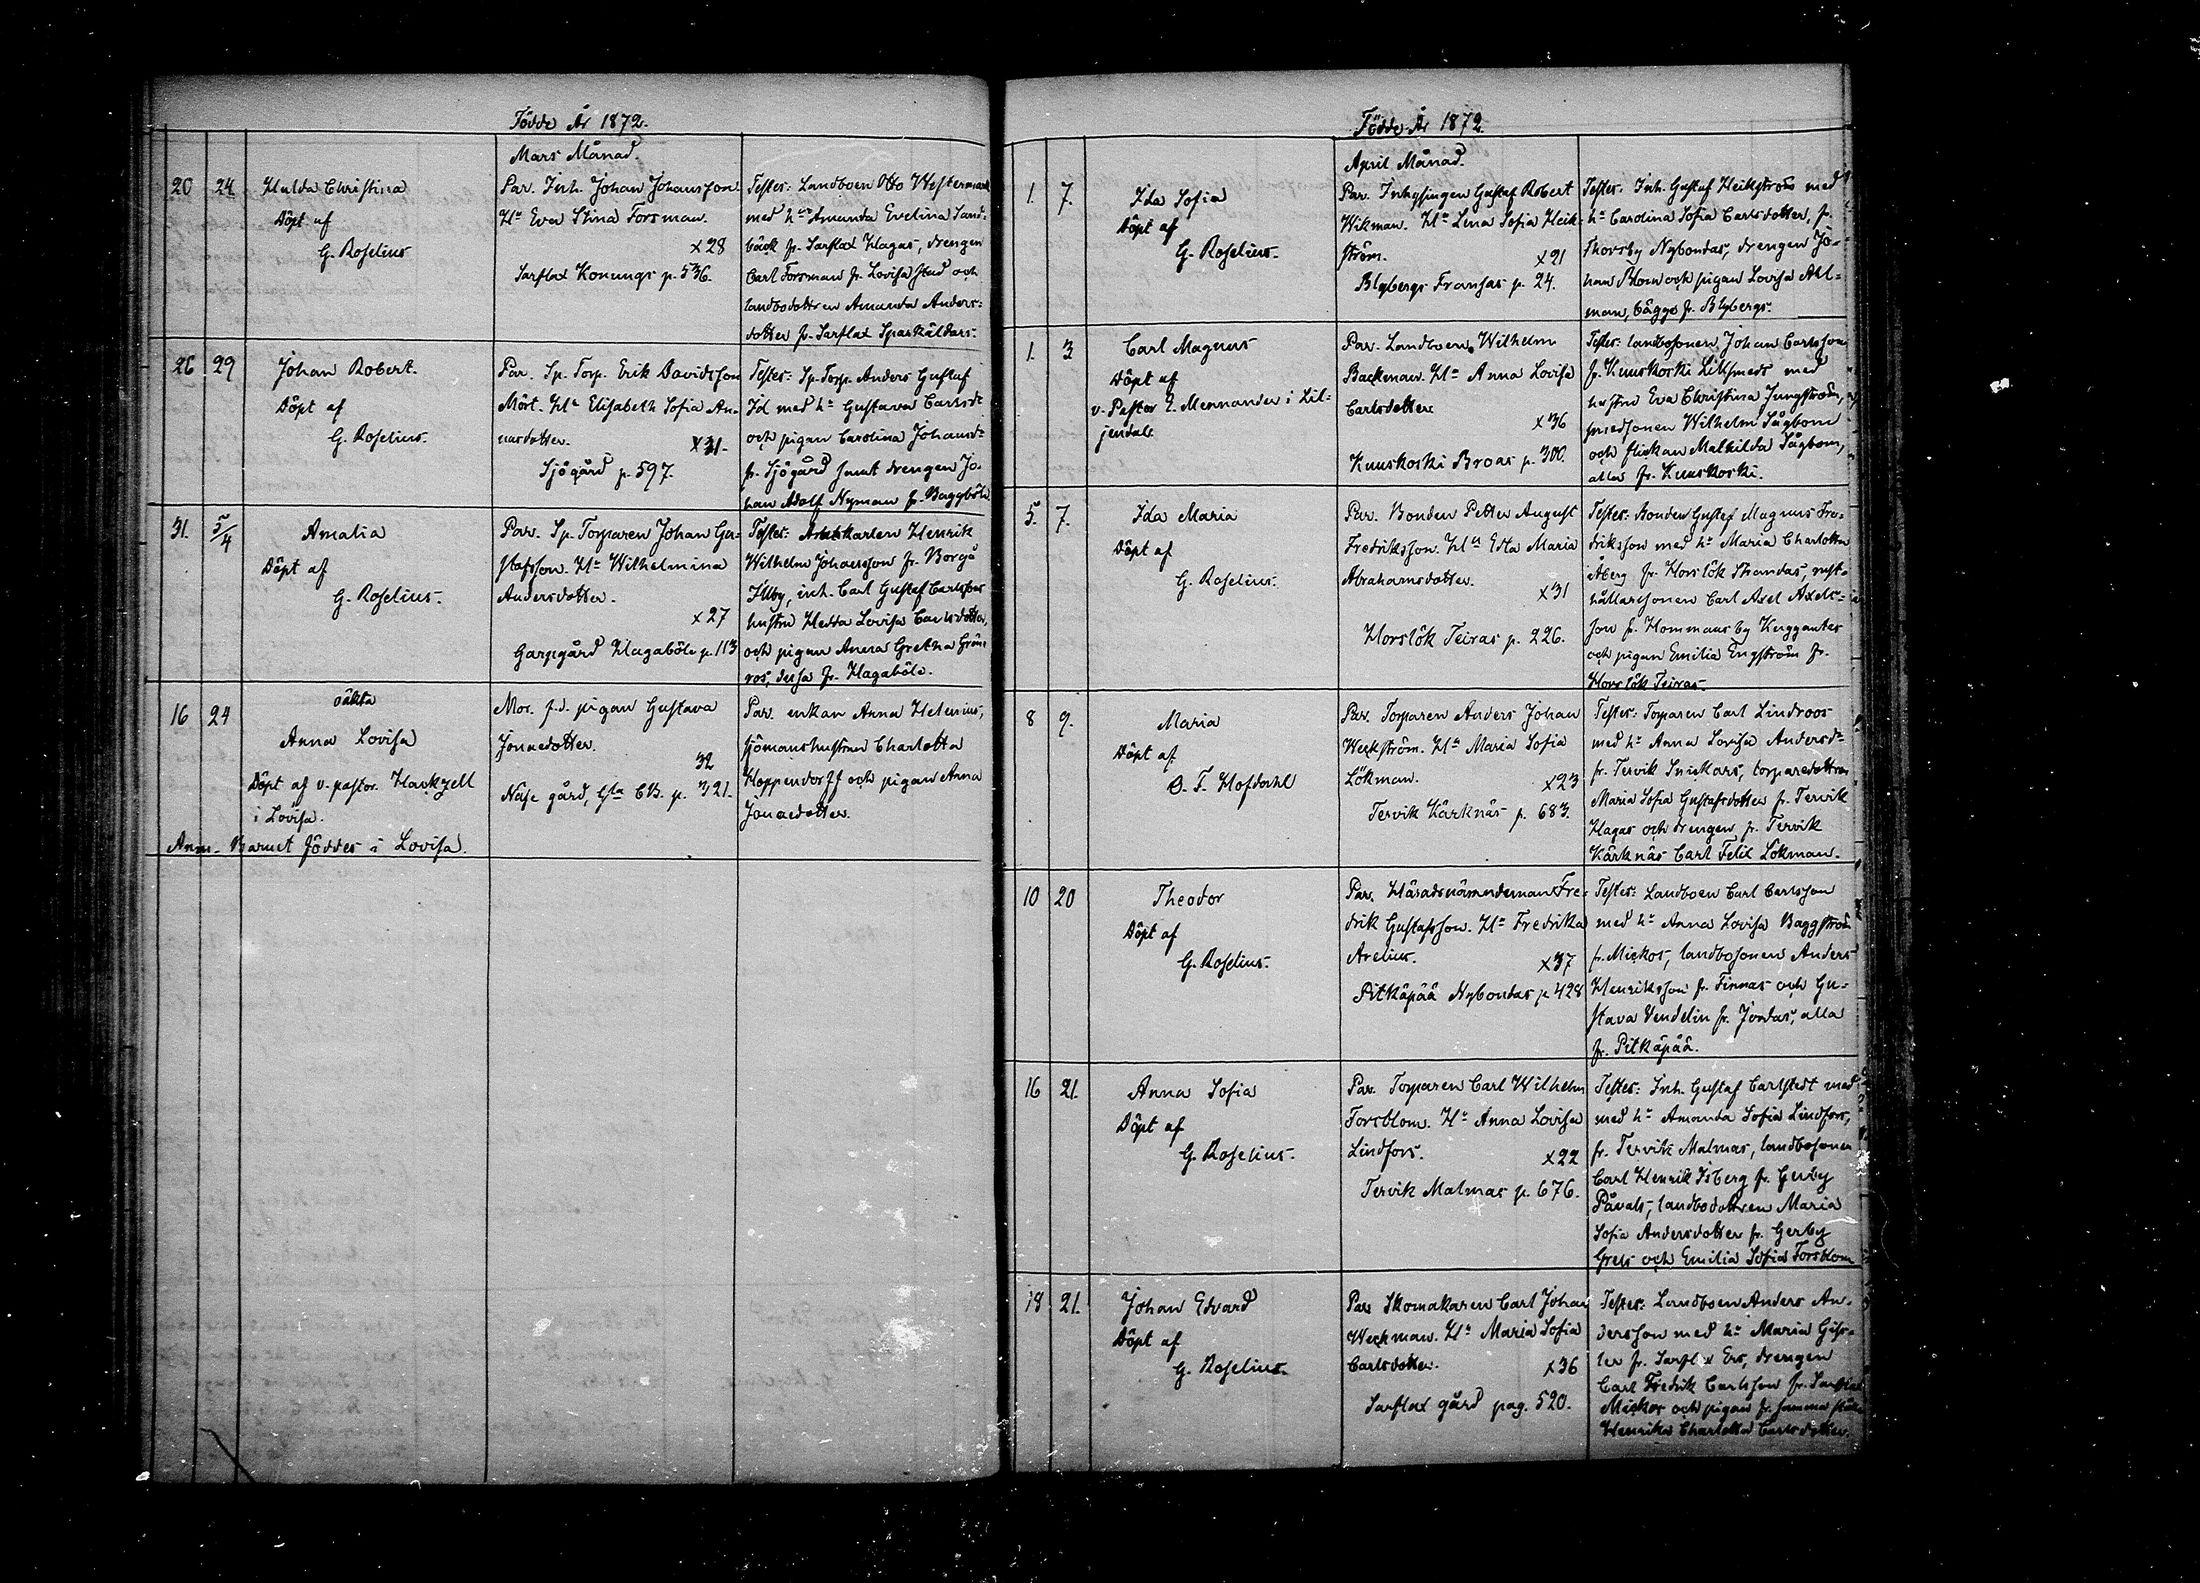 Födde År 1872.
Mars Månad.
20 24 Hulda Christina
Döpt af
G. Roselius
Par. Inh. Johan Johansson
Hu Eva Stina Forsman.
x28
Sarflax Konungs p. 536.
Testes: Landboen Otto Westermark
med hu Amanda Evelina Sand-
bäck fr. Sarflax Hagas, drengen
Carl Forsman fr. Lovisa stad och
landbodottren Amanda Anders-
dotter fr. Sarflax Sparkäldars.
26 29 Johan Robert.
Döpt af
G. Roselius.
Par. Sp. Torp. Erik Davidsson
Mört. Hu Elisabeth Sofia An-
nasdotter.
x31.
Sjögård p. 597.
Testes: Sp. Torp. Anders Gustaf
Id med hu Gustava Carlsdr
och pigan Carolina Johansdr
fr. Sjögård samt drengen Jo-
han Adolf Nyman fr. Baggböle
31. 5/4 Amalia
Döpt af
G. Roselius.
Par. Sp. Torparen Johan Gu-
stafsson. Hu Wilhelmina
Andersdotter.
x27
Garpgård Hagaböle p. 113
Testes: Arbetskarlen Henrik
Wilhelm Johansson fr. Borgå
Illby, inh. Carl Gustaf Carlssons
hustru Hedda Lovisa Carlsdotter,
och pigan Anna Gretha Grön-
ros, dessa fr. Hagaböle.
oäkta
16 24 Anna Lovisa
Döpt af v. pastor Hackzell
i Lovisa.
Anm. Barnet föddes i Lovisa.
Mor. f.d. pigan Gustava
Jonaedotter.
32
Näse gård, Gla CB. p. 321.
Par. enkan Anna Helenius,
sjömanshustrun Charlotta
Hoppendorff och pigan Anna
Jonaedotter.
Födde År 1872.
April Månad.
1. 7. Ida Sofia
Döpt af
G. Roselius.
Par. Inhysingen Gustaf Robert
Wikman. Hu Lena Sofia Heik-
ström.
x21
Blybergs Fransas p. 24.
Testes: Inh. Gustaf Heikström med
hu Carolina Sofia Carlsdotter, fr.
Thorsby Nybondas, drengen Jo-
han Blom och pigan Lovisa Ahl-
man, bägge fr. Blybergs.
1. 3 Carl Magnus
Döpt af
v. Pastor E. Mennander i Lil-
jendal.
Par. Landboen Wilhelm
Backman. Hu Anna Lovisa
Carlsdotter
x36
Kuuskoski Broas p. 300.
Testes: landbosonen Johan Carlsson
fr. Kuuskoski Lillsmeds med
hustru Eva Christina Jungström,
smedsonen Wilhelm Sågbom
och flickan Mathilda Sågbom,
alla fr. Kuuskoski.
5. 7. Ida Maria
Döpt af
G. Roselius.
Par. Bonden Petter August
Fredriksson. Hu Eda Maria
Abrahamsdotter.
x31
Horslök Teiras p. 226.
Testes: Bonden Gustaf Magnus Fre-
driksson med hu Maria Charlotta
Åberg fr. Horslök Strandas, rust-
hållarsonen Carl Axel Axels-
son fr. Hommansby Kuggantas
och pigan Emilia Engström fr.
Horslök Teiras.
8 9. Maria
Döpt af
O. F. Hofdahl
Par. Torparen Anders Johan
Weckström. Hu Maria Sofia
Lökman.
x23
Tervik Kärknäs p. 683.
Testes: Torparen Carl Lindroos
med hu Anna Lovisa Andersdr
fr. Tervik Snickars, torparedottren
Maria Sofia Gustafsdotter fr. Tervik
Hagas och drengen fr. Tervik
Kärknäs Carl Felix Lökman.
10 20 Theodor
Döpt af
G. Roselius.
Par. Häradsnämndeman Fre-
drik Gustafsson. Hu Fredrika
Arelius.
x37
Pitkäpää Nybondas p. 428
Testes: Landboen Carl Carlsson
med hu Anna Lovisa Baggström
fr. Mickos, landbosonen Anders
Henriksson fr. Finnas och Gu-
stava Vendelin fr. Jordas, alla
fr. Pitkäpää.
16 21. Anna Sofia
Döpt af
G. Roselius.
Par. Torparen Carl Wilhelm
Forsblom. Hu Anna Lovisa
Lindfors.
x22
Tervik Malmas p. 676.
Testes: Inh. Gustaf Carlstedt med
med hu Amanda Sofia Lindfors,
fr. Tervik Malmas, landbosonen
Carl Henrik Isberg fr. Gerby
Påvals, landbodottren Maria
Sofia Andersdotter fr. Gerby
Grels och Emilia Sofia Forsblom
18 21. Johan Edvard
Döpt af
G. Roselius.
Par. Skomakaren Carl Johan
Weckman. Hu Maria Sofia
Carlsdotter.
x36
Sarflax gård pag. 520.
Testes: Landboen Anders An-
dersson med hu Maria Giss-
ler fr. Sarflax Ers, drengen
Carl Fredrik Carlsson fr. Sarflax
Mickos och pigan fr. samma ställe
Henrika Charlotta Carlsdotter.